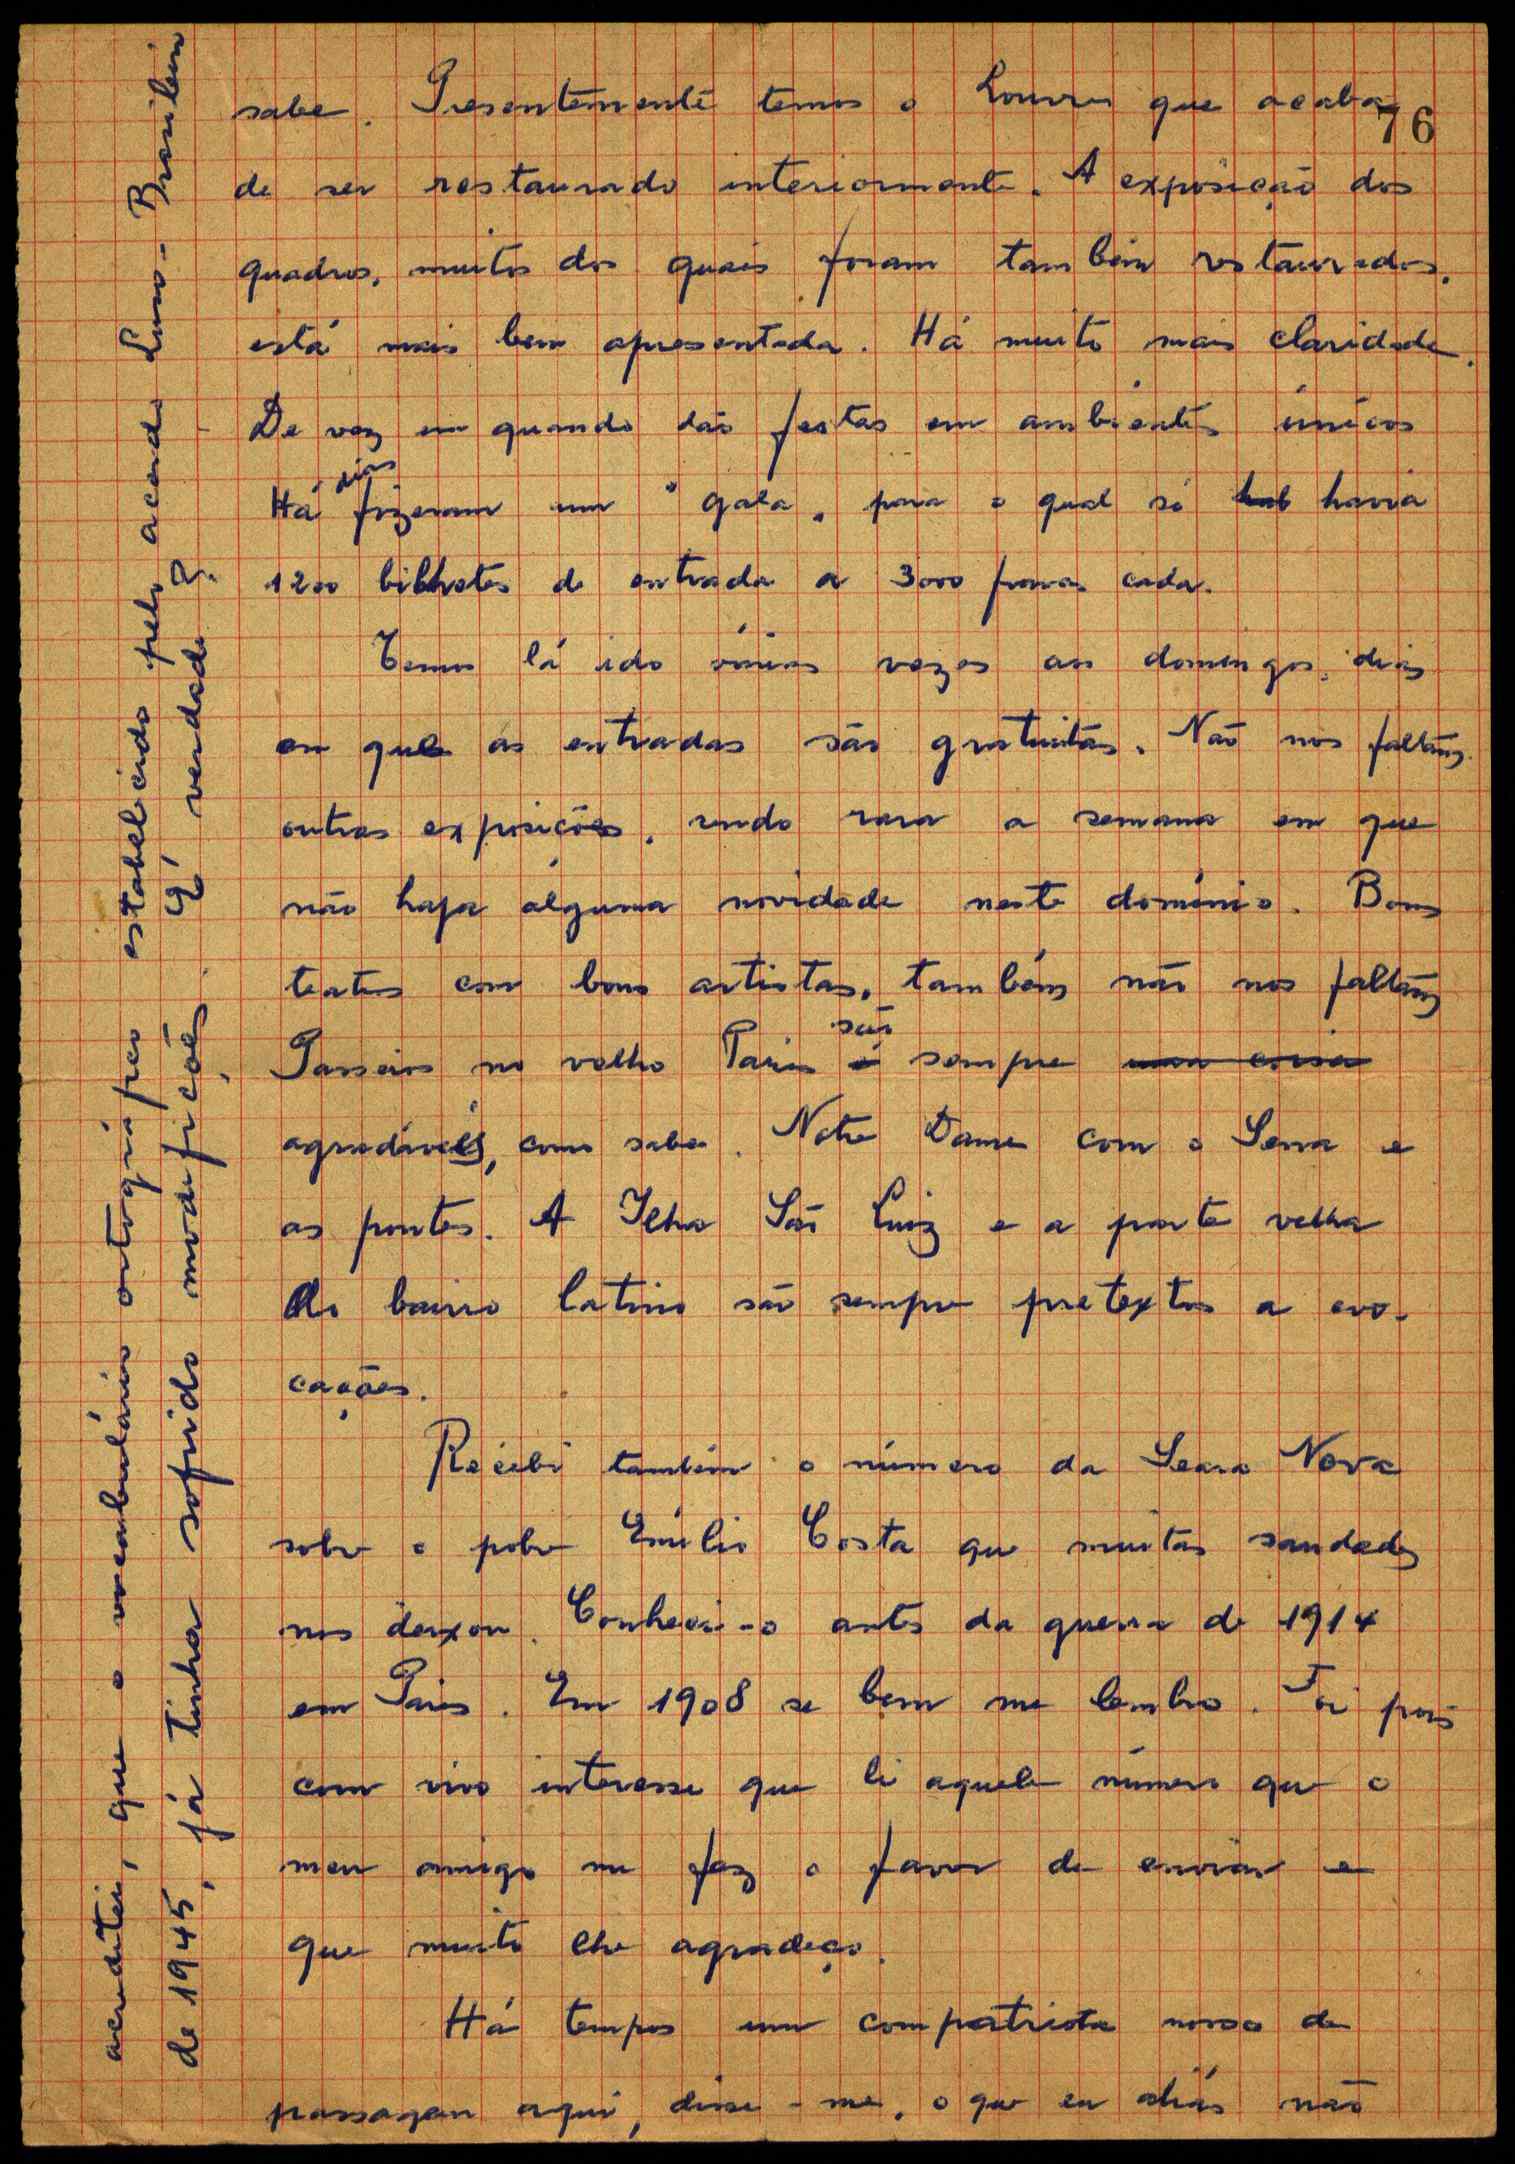 76
sabe. Presentemente temos o Louvre que acaba
de ser restaurado interiormente. A exposição dos
quadros, muitos dos quais foram também restaurados,
está mais bem apresentada. Há muito mais claridade.
De vez em quando dão festas em ambientes únicos
Há dias fizeram um "gala" para o qual só havia
1200 bilhetes de entrada a 3000 francos cada.
Temos lá ido várias vezes aos domingos, dias
em que as entradas são gratuitas. Não nos faltam
outras exposições, sendo rara a semana em que
não haja alguma novidade neste domínio. Bons
teatros com bons artistas, também não nos faltam
Passeios no velho Paris são sempre uma coisa
agradáveis, como sabe. Notre Dame com o Sena e
as pontes. A Ilha São Luiz e a parte velha
do bairro latino são sempre pretextos a evo-
cações.
Recebi também o número da Seara Nova
sobre o pobre Emílio Costa que muitas saudades
nos deixou. Conheci-o antes da guerra de 1914
em Paris. Em 1908 se bem me lembro. Foi pois
com vivo interesse que li aquele número que o
meu amigo me fez o favor de enviar e
que muito lhe agradeço.
Há tempos um compatriota nosso de
passagem aqui, disse-me, o que eu aliás não
acreditei, que o vocabulário ortográfico estabelecido pelo acordo Luso-Brasileiro
de 1945, já tinha sofrido modificações. É verdade?